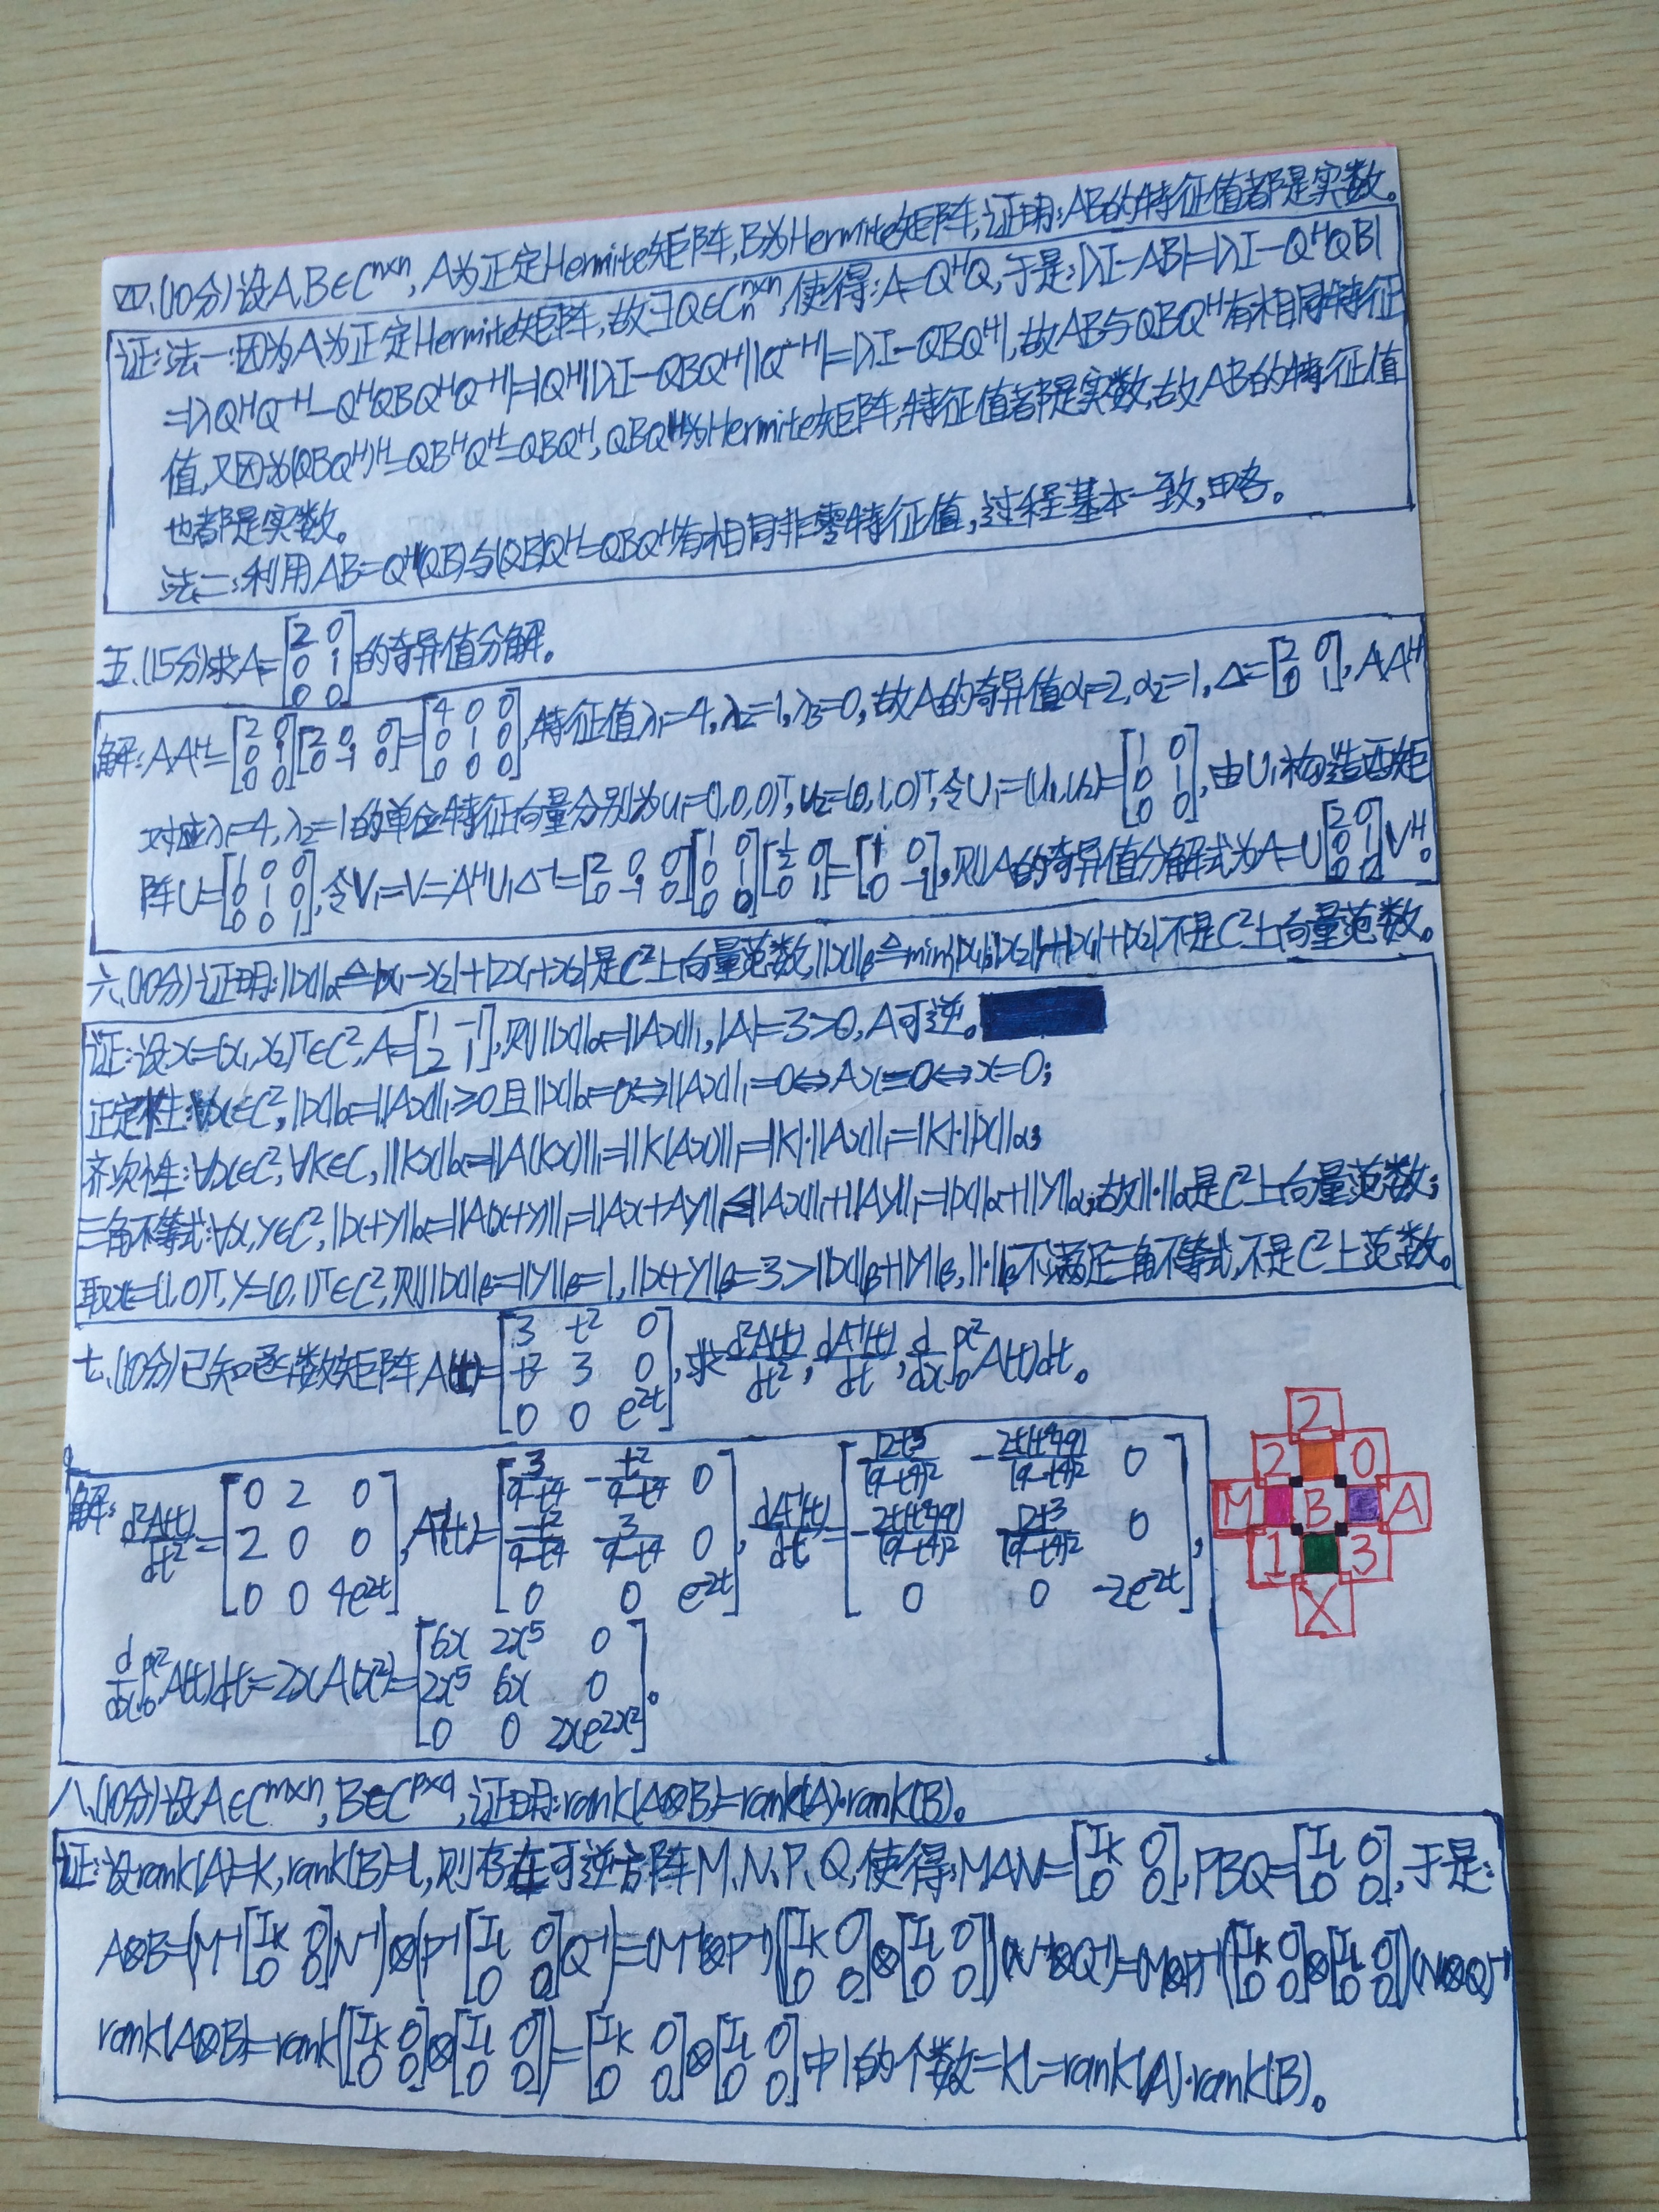 四、(10分)设A,B∈C^{n×n}, A为正定Hermite矩阵,B为Hermite矩阵,证明:AB的特征值都是实数。
证:法一:因为A为正定Hermite矩阵,故∃Q∈C_n^{n×n},使得:A=Q^HQ,于是:|λI-AB|=|λI-Q^HQB|
=|λQ^HQ^{-H}-Q^HQBQ^HQ^{-H}|=|Q^H||λI-QBQ^H||Q^{-H}|=|λI-QBQ^H|,故AB与QBQ^H有相同特征
值,又因为(QBQ^H)^H=QB^HQ^H=QBQ^H,QBQ^H为Hermite矩阵,特征值都是实数,故AB的特征值
也都是实数。
法二:利用AB=Q^H(QB)与(QB)Q^H=QBQ^H有相同非零特征值,过程基本一致,略。
五、(15分)求A=[2 0; 0 1; 0 0]的奇异值分解。
解:AA^H=[2 0; 0 1; 0 0][2 0 0; 0 1 0]=[4 0 0; 0 1 0; 0 0 0],特征值λ1=4,λ2=1,λ3=0,故A的奇异值α1=2,α2=1,Δ=[2 0; 0 1],AA^H
对应λ1=4,λ2=1的单位特征向量分别为u1=(1,0,0)^T,u2=(0,1,0)^T,令U1=(u1,u2)=[1 0; 0 1; 0 0],由U1构造酉矩
阵U=[1 0 0; 0 1 0; 0 0 1],令V1=V=A^HU1Δ^{-1}=[2 0 0; 0 1 0][1 0; 0 1; 0 0][1/2 0; 0 1]=[1 0; 0 1],则A的奇异值分解式为A=U[2 0; 0 1; 0 0]V^H。
六、(10分)证明:||x||α≜|x1-x2|+|2x1+x2|是C²上向量范数,||x||β≜min{|x1|,|x2|}+|x1|+|x2|不是C²上向量范数。
证:设x=(x1,x2)^T∈C²,A=[1 -1; 2 1],则||x||α=||Ax||1,|A|=3>0,A可逆。
正定性:∀x∈C²,||x||α=||Ax||1≥0且||x||α=0⇔||Ax||1=0⇔Ax=0⇔x=0;
齐次性:∀x∈C²,∀k∈C,||kx||α=||A(kx)||1=||k(Ax)||1=|k|·||Ax||1=|k|·||x||α;
三角不等式:∀x,y∈C²,||x+y||α=||A(x+y)||1=||Ax+Ay||1≤||Ax||1+||Ay||1=||x||α+||y||α;故||·||α是C²上向量范数;
取x=(1,0)^T,y=(0,1)^T∈C²,则||x||β=||y||β=1,||x+y||β=3>||x||β+||y||β,||·||β不满足三角不等式,不是C²上范数。
七、(10分)已知函数矩阵A(t)=[3 t² 0; t² 3 0; 0 0 e^{2t}],求d²A(t)/dt²,dA^{-1}(t)/dt,d/dx∫_0^{x²}A(t)dt。
解:d²A(t)/dt²=[0 2 0; 2 0 0; 0 0 4e^{2t}],A^{-1}(t)=[3/(9-t⁴) -t²/(9-t⁴) 0; -t²/(9-t⁴) 3/(9-t⁴) 0; 0 0 e^{-2t}],dA^{-1}(t)/dt=[12t³/(9-t⁴)² -2t(t⁴+9)/(9-t⁴)² 0; -2t(t⁴+9)/(9-t⁴)² 12t³/(9-t⁴)² 0; 0 0 -2e^{-2t}],
d/dx∫_0^{x²}A(t)dt=2xA(x²)=[6x 2x⁵ 0; 2x⁵ 6x 0; 0 0 2xe^{2x²}]。
2
2 0
M B A
1 3
X
八、(10分)设A∈C^{m×n},B∈C^{p×q},证明:rank(A⊗B)=rank(A)·rank(B)。
证:设rank(A)=k,rank(B)=l,则存在可逆方阵M、N、P、Q,使得:MAN=[I_k 0; 0 0],PBQ=[I_l 0; 0 0],于是:
A⊗B=(M^{-1}[I_k 0; 0 0]N^{-1})⊗(P^{-1}[I_l 0; 0 0]Q^{-1})=(M^{-1}⊗P^{-1})([I_k 0; 0 0]⊗[I_l 0; 0 0])(N^{-1}⊗Q^{-1})=(M⊗P)^{-1}([I_k 0; 0 0]⊗[I_l 0; 0 0])(N⊗Q)^{-1}
rank(A⊗B)=rank([I_k 0; 0 0]⊗[I_l 0; 0 0])=[I_k 0; 0 0]⊗[I_l 0; 0 0]中1的个数=kl=rank(A)·rank(B)。